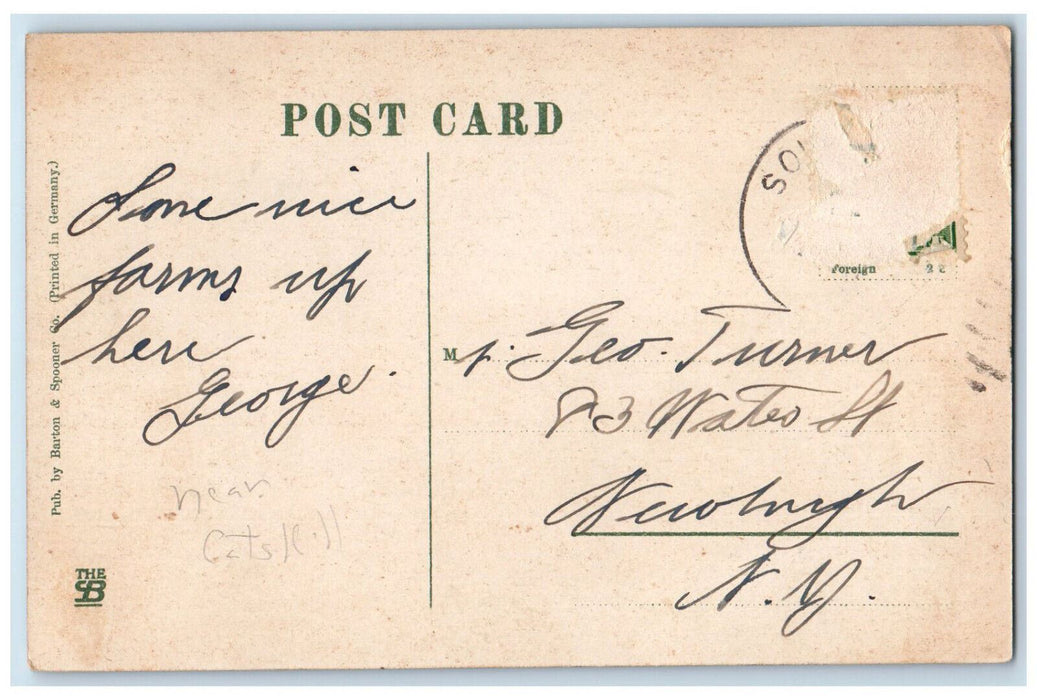 POST CARD
Pub. by Barton & Spooner Co. (Printed in Germany.)
Some nice
farms up
here
George.
near
Catskill
THE
SB
SOU
Foreign 2c
Mr. Geo. Turner
83 Water St
Newburgh
N.Y.